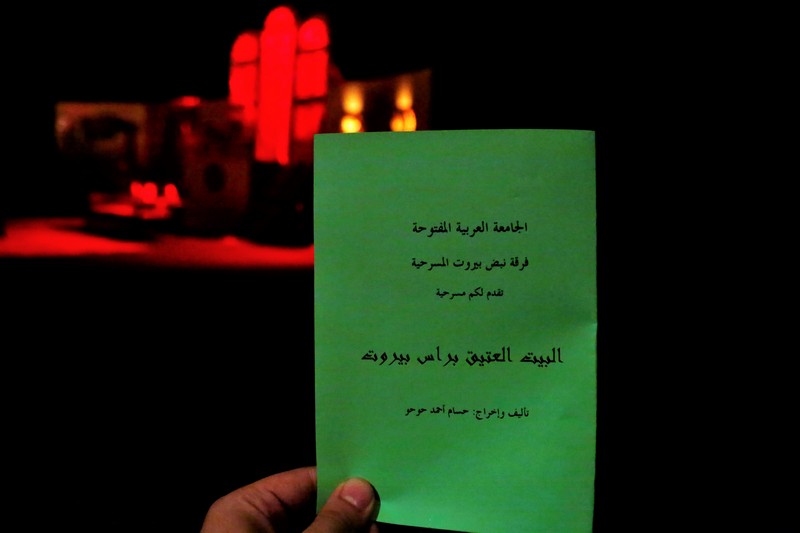 الجامعة العربية المفتوحة
فرقة نبض بيروت المسرحية
تقدم لكم مسرحية
البيت العتيق براس بيروت
تأليف وإخراج: حسام أحمد حوحو